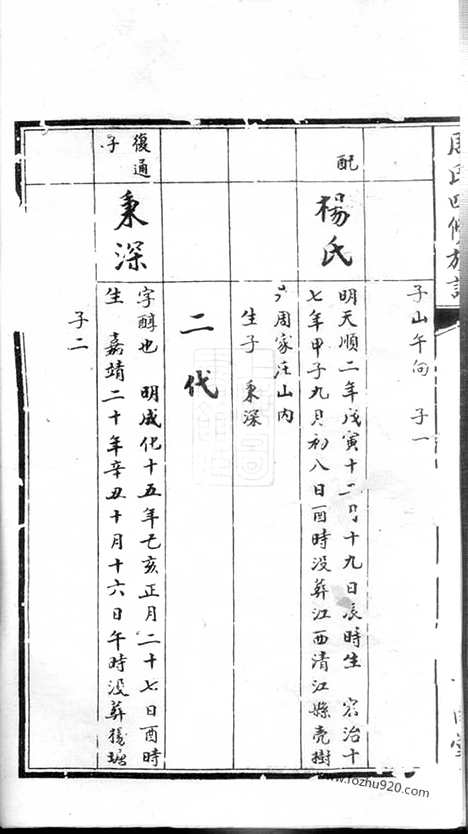 周氏四修族譜
子山午向 子一
配
楊氏
明天順二年戊寅十二月十九日辰時生 宏治十
七年甲子九月初八日酉時没葬江西清江縣売樹
周家庄山内
生子 秉深
二代
復通
子
秉深
字醇也 明成化十五年乞亥正月二十七日酉時
生 嘉靖二十年辛丑十月十六日午時没葬後塘
子二
www.fozhu920.com